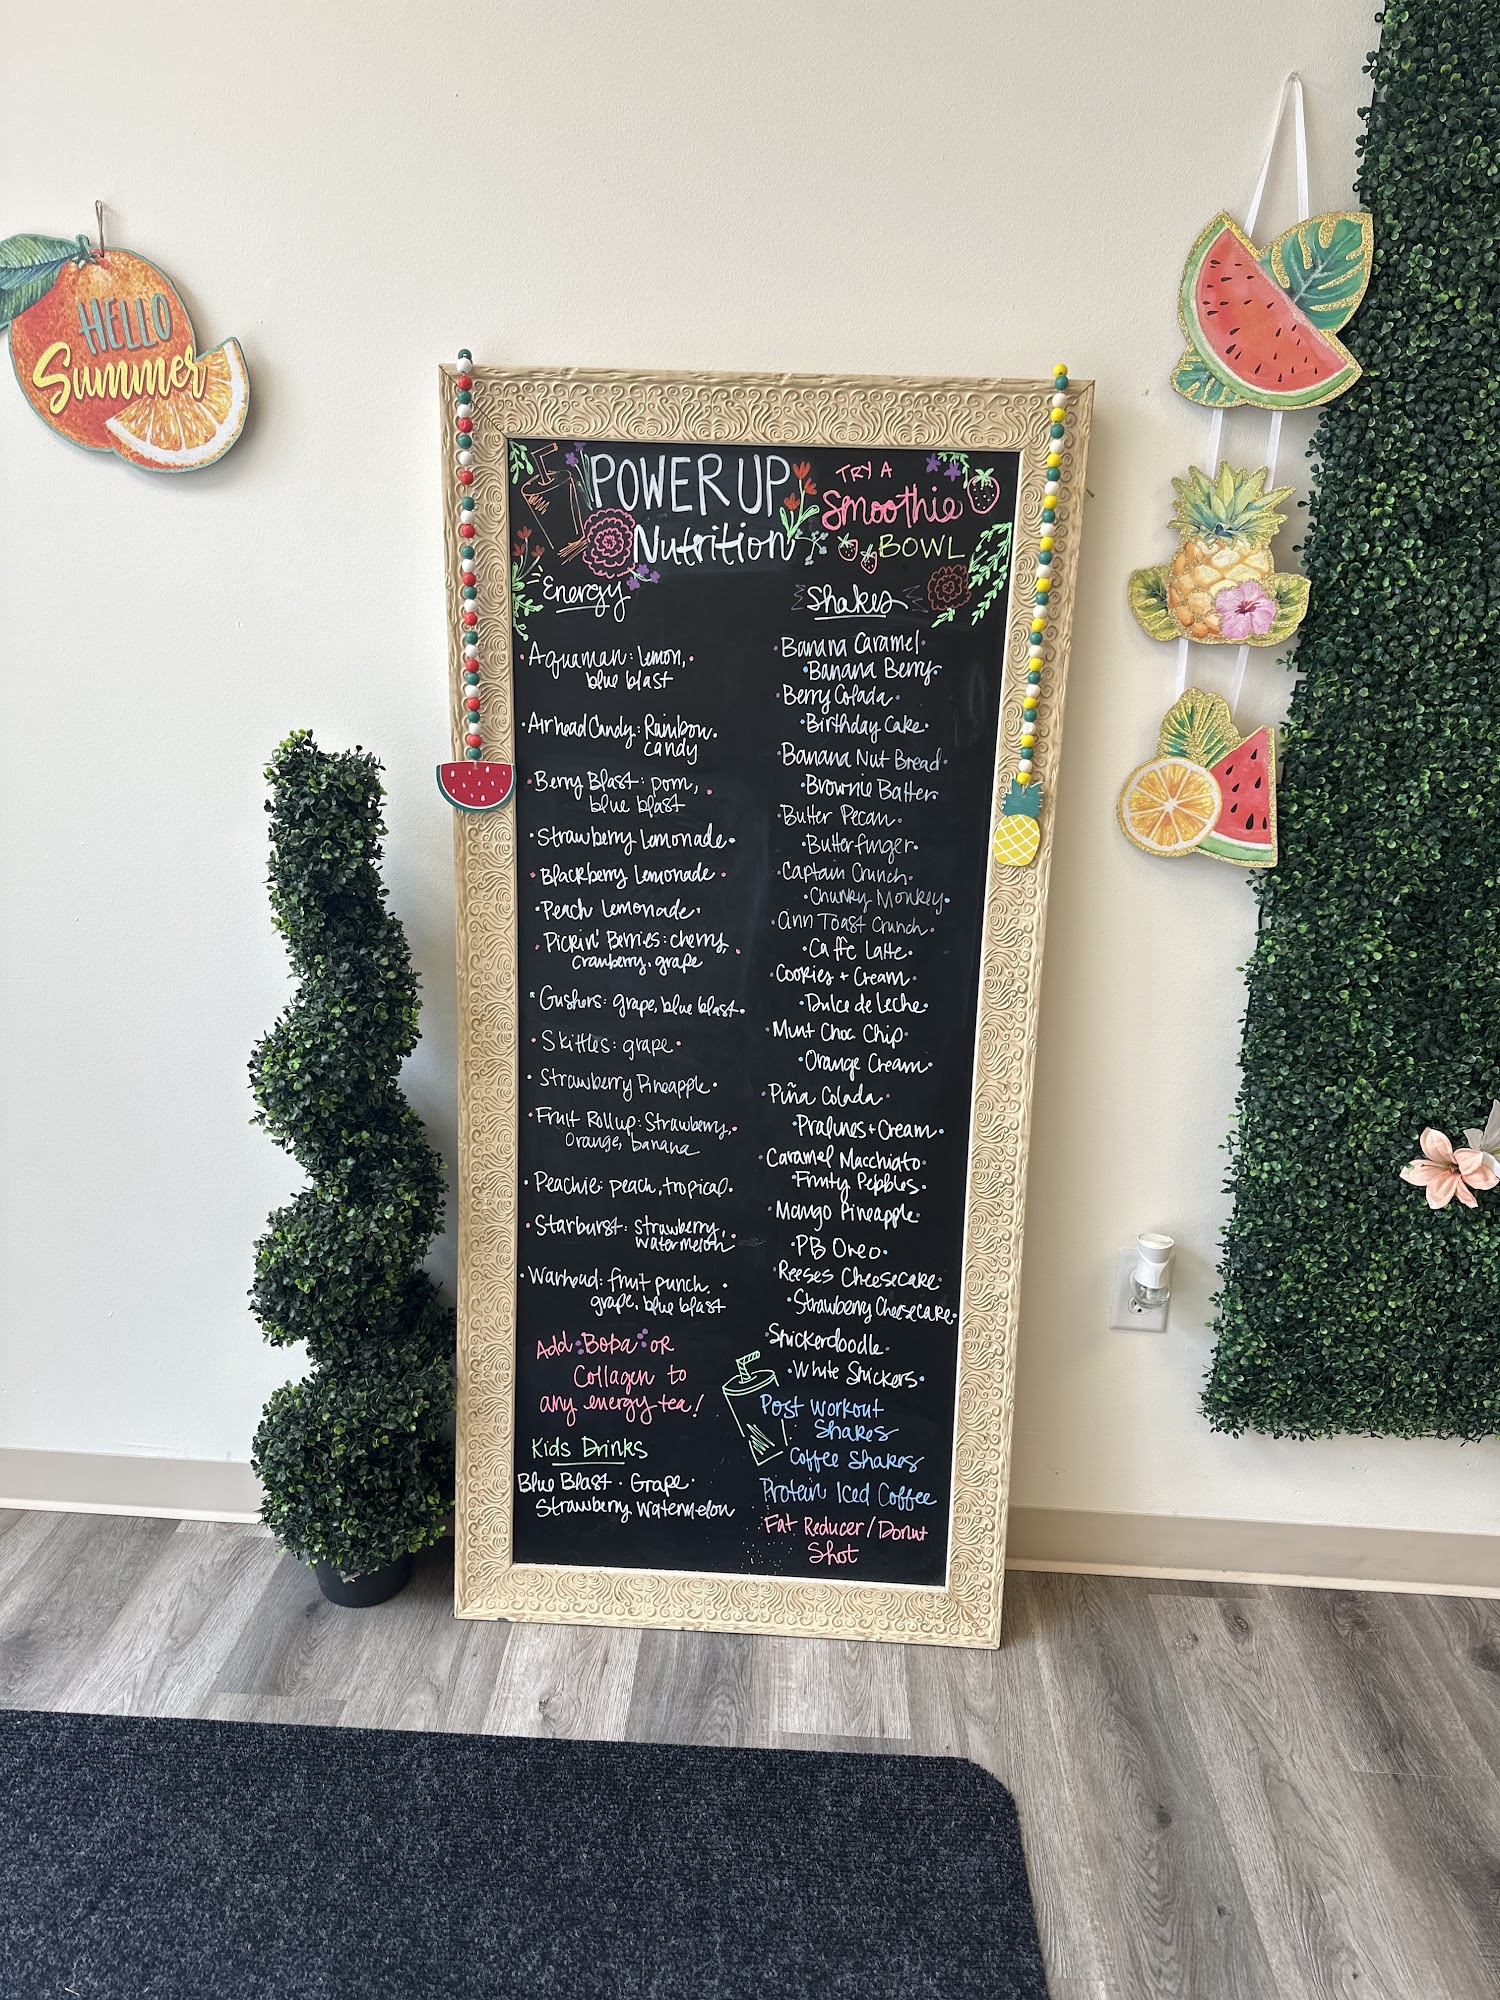 HELLO
Summer
POWER UP
Nutrition
TRY A
Smoothie
BOWL
Energy
• Aquaman: lemon, •
blue blast
• Airhead Candy: Rainbow •
candy
• Berry Blast: pom, •
blue blast
• Strawberry Lemonade •
• Blackberry Lemonade •
• Peach Lemonade •
• Pickin' Berries: cherry, •
cranberry, grape
• Gushers: grape, blue blast •
• Skittles: grape •
• Strawberry Pineapple •
• Fruit Rollup: Strawberry, •
Orange, banana
• Peachie: peach, tropical •
• Starburst: strawberry, •
watermelon
• Warhead: fruit punch, •
grape, blue blast
Add Boba OR
Collagen to
any energy tea!
Kids Drinks
Blue Blast • Grape •
Strawberry Watermelon
Shakes
• Banana Caramel •
• Banana Berry •
• Berry Colada •
• Birthday Cake •
• Banana Nut Bread •
• Brownie Batter •
• Butter Pecan •
• Butterfinger •
• Captain Crunch •
• Chunky Monkey •
• Cinn Toast Crunch •
• Caffe Latte •
• Cookies + Cream •
• Dulce de Leche •
• Mint Choc Chip •
• Orange Cream •
• Piña Colada •
• Pralines + Cream •
• Caramel Macchiato •
• Fruity Pebbles •
• Mango Pineapple •
• PB Oreo •
• Reeses Cheesecake •
• Strawberry Cheesecake •
• Snickerdoodle •
• White Snickers •
Post Workout
Shakes
Coffee Shakes
Protein Iced Coffee
Fat Reducer / Donut
Shot